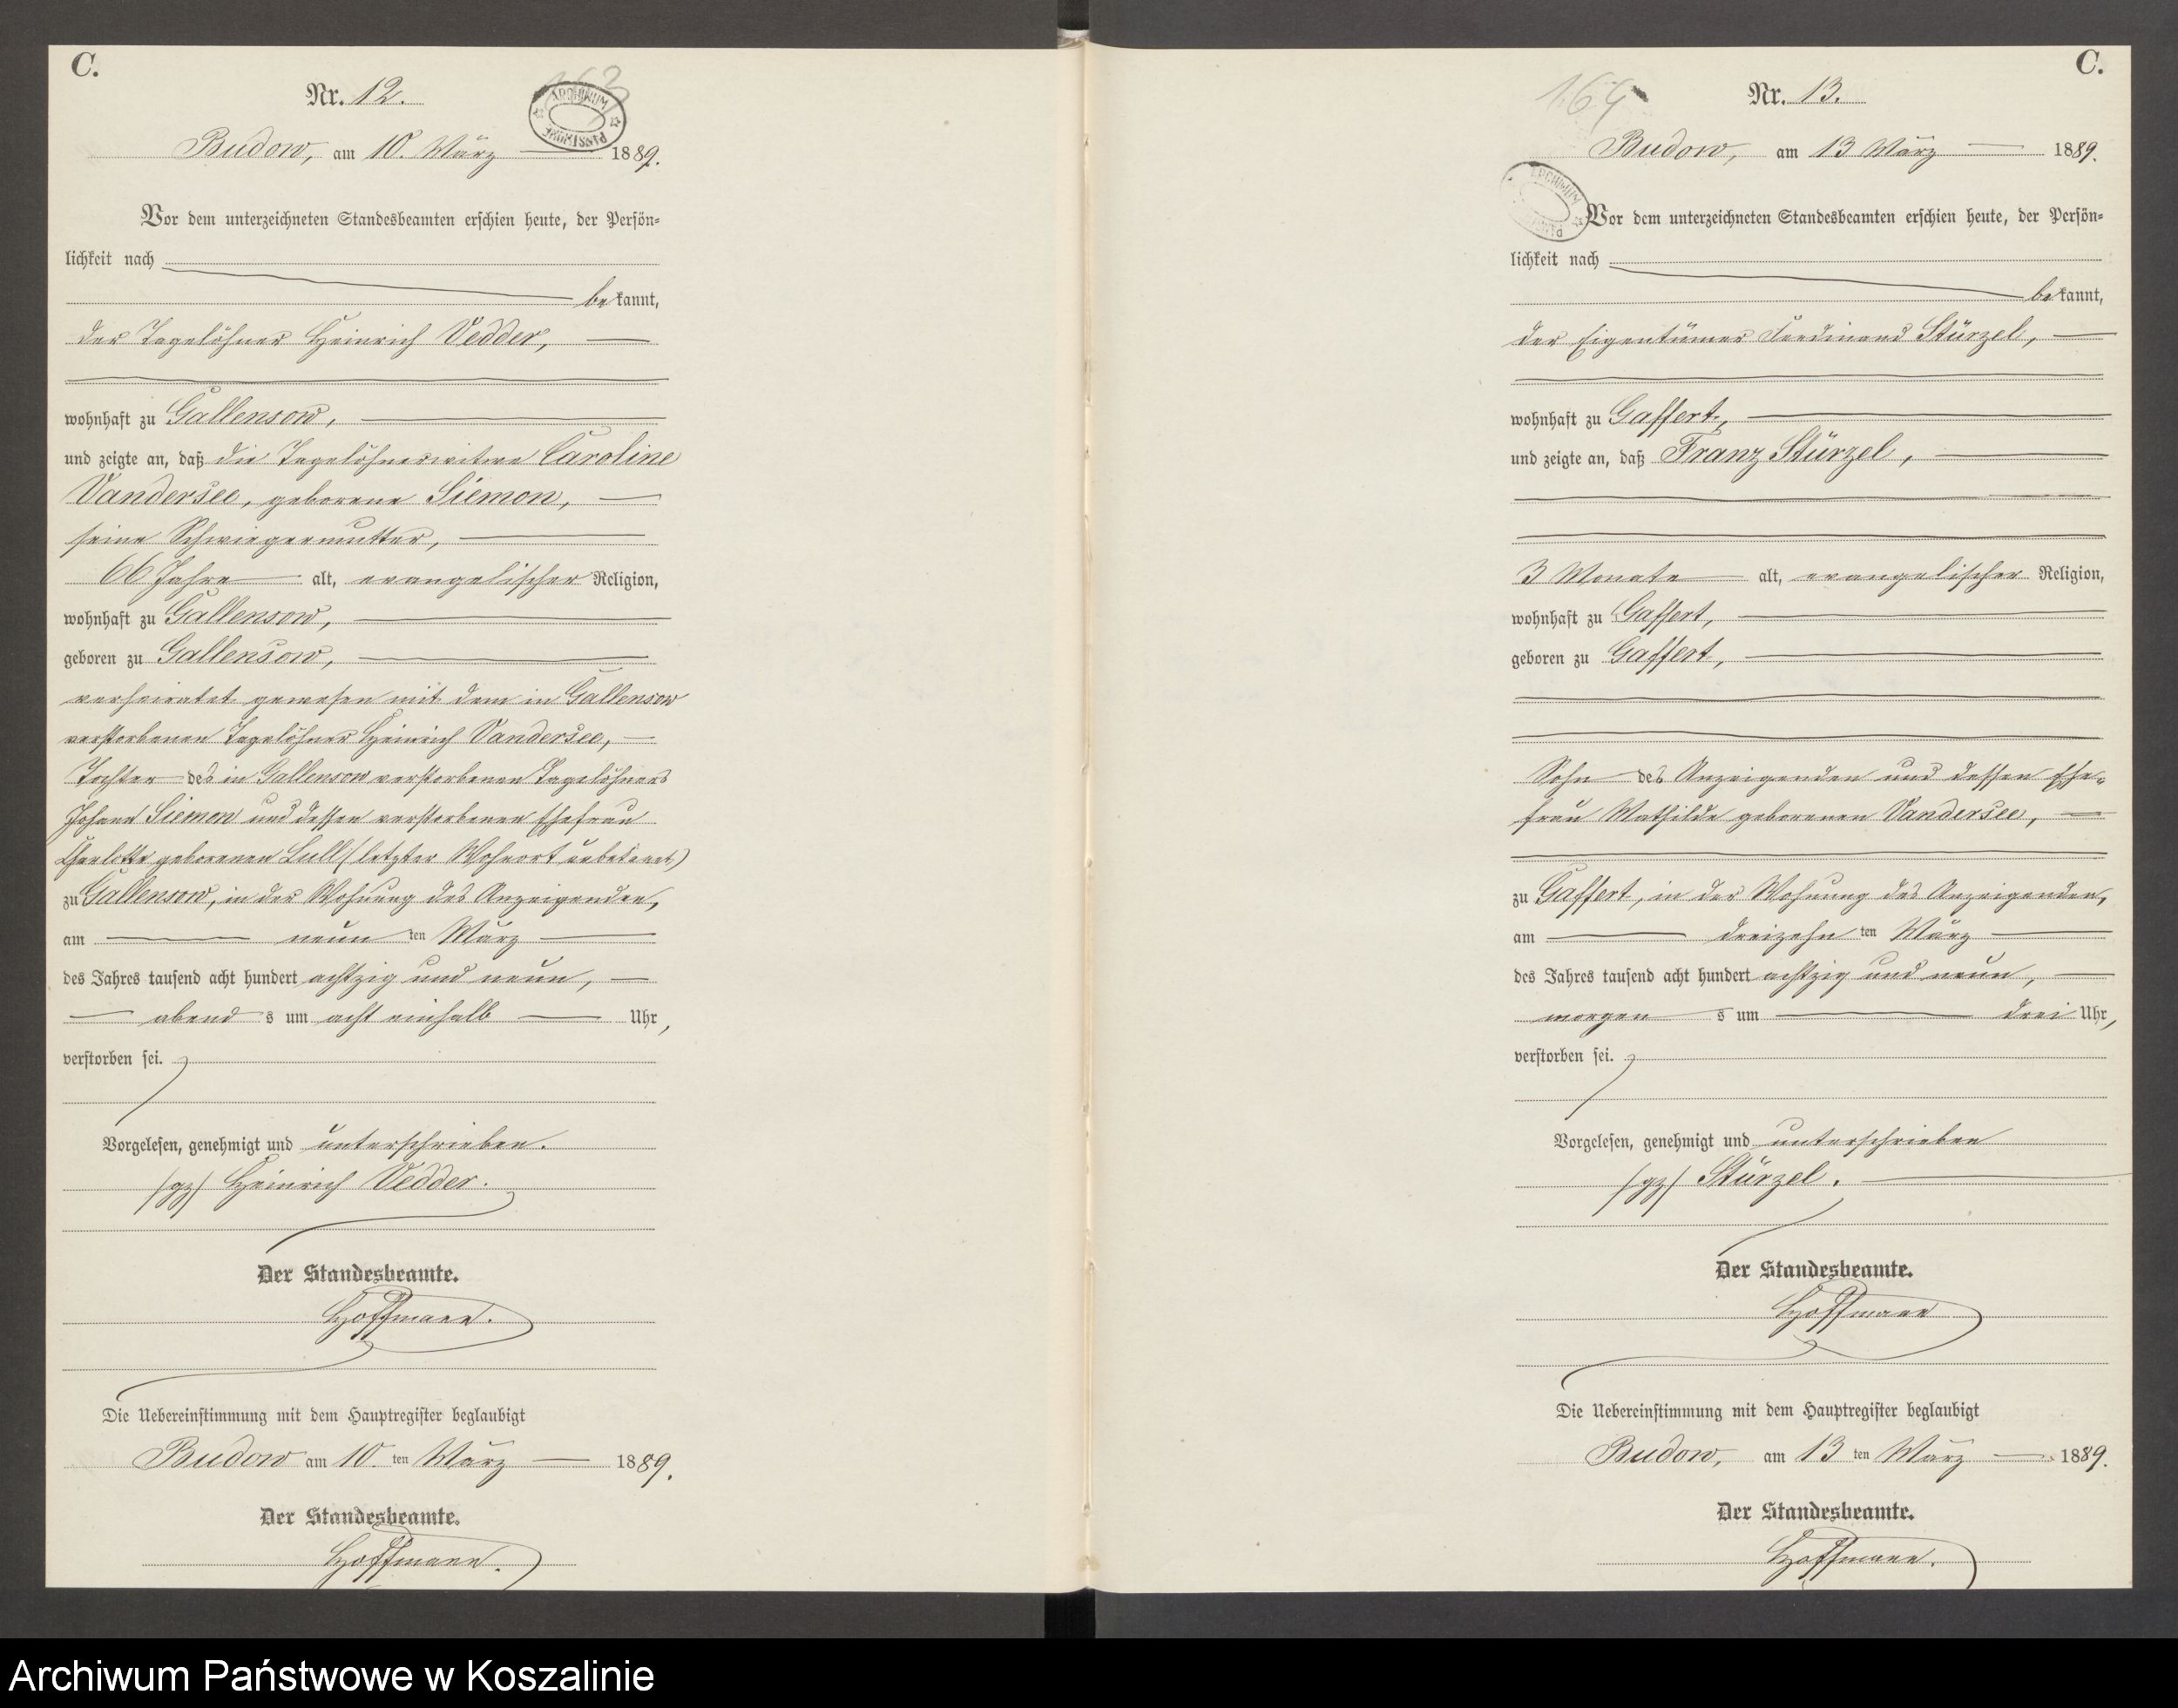 C.
Nr. 12.
163
ARCHIWUM PAŃSTWOWE
Budow, am 10. März 1889.
Vor dem unterzeichneten Standesbeamten erschien heute, der Persön-
lichkeit nach
bekannt,
der Tagelöhner Heinrich Vedder,
wohnhaft zu Gallensow,
und zeigte an, daß die Tagelöhnerwitwe Caroline
Vandersee, geborene Siemon,
seine Schwiegermutter,
66 Jahre alt, evangelischer Religion,
wohnhaft zu Gallensow,
geboren zu Gallensow,
verheiratet gewesen mit dem in Gallensow
verstorbenen Tagelöhner Heinrich Vandersee,
Tochter des in Gallensow verstorbenen Tagelöhners
Johann Siemon und dessen verstorbenen Ehefrau
Charlotte geborenen Lull (letzter Wohnort unbekannt)
zu Gallensow, in der Wohnung des Anzeigenden,
am neunten März
des Jahres tausend acht hundert achtzig und neun,
abends um acht einhalb Uhr,
verstorben sei.
Vorgelesen, genehmigt und unterschrieben.
/gz/ Heinrich Vedder.
Der Standesbeamte.
Hoffmann.
Die Uebereinstimmung mit dem Hauptregister beglaubigt
Budow am 10.ten März 1889.
Der Standesbeamte.
Hoffmann.
C.
164
Nr. 13.
Budow, am 13 März 1889.
Vor dem unterzeichneten Standesbeamten erschien heute, der Persön-
lichkeit nach
bekannt,
der Eigentümer Ferdinand Stürzel,
wohnhaft zu Gaffert,
und zeigte an, daß Franz Stürzel,
3 Monate alt, evangelischer Religion,
wohnhaft zu Gaffert,
geboren zu Gaffert,
Sohn des Anzeigenden und dessen Ehe-
frau Mathilde geborenen Vandersee,
zu Gaffert, in der Wohnung des Anzeigenden,
am dreizehnten März
des Jahres tausend acht hundert achtzig und neun,
morgens um drei Uhr,
verstorben sei.
Vorgelesen, genehmigt und unterschrieben
/gz/ Stürzel.
Der Standesbeamte.
Hoffmann
Die Uebereinstimmung mit dem Hauptregister beglaubigt
Budow, am 13 ten März 1889.
Der Standesbeamte.
Hoffmann.
Archiwum Państwowe w Koszalinie